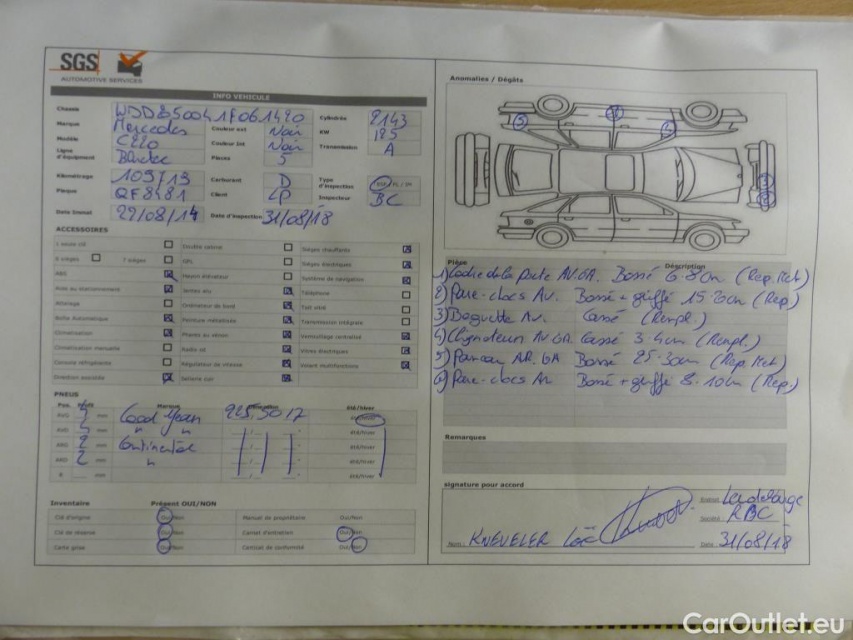 SGS
AUTOMOTIVE SERVICES
INFO VEHICULE
Chassis WDD850041F061420
Marque Mercedes Couleur ext Noir Cylindrée 2143
Modèle C220 Couleur int Noir KW 125
Ligne d'équipement Places 5 Transmission A
Kilométrage 109713 Carburant D Type d'inspection
Plaque QF8481 Client LP Inspecteur BC
Date 1immat 29/08/14 Date d'inspection 31/08/18
ACCESSOIRES
ABS
GPL
Sièges chauffants
Sièges électriques
Système de navigation
Téléphone
Toit vitré
Aide au stationnement
Attelage
Boîte Automatique
Climatisation
Climatisation manuelle
Console réfrigérante
Direction assistée
Ordinateur de bord
Peinture métallisée
Radio k7
Régulation de vitesse
Transmission intégrale
Verrouillage centralisé
Vitres électriques
Volant multifonctions
PNEUS
Pos. Marque été/hiver
AVG 5 mm Good Year 225.50 17
AVD 5 mm " " été/hiver
ARG 2 mm Continental été/hiver
ARD 2 mm " été/hiver
R mm été/hiver
Inventaire Présent OUI/NON
Clé d'origine Oui/Non Manuel de propriétaire Oui/Non
Clé de réserve Oui/Non Carnet d'entretien Oui/Non
Carte grise Oui/Non Certificat de conformité Oui/Non
Anomalies / Dégâts
Pièce Description
1) Cadre de la Porte AV.GA. Bossé 6.8cm (Rep. Met)
2) Pare-chocs Av. Bossé + griffé 15.20cm (Rep)
3) Baguette Av. Cassé (Rempl.)
4) Clignoteur AV GA Cassé 3.4cm (Rempl.)
5) Panneau AR. GA Bossé 25.30cm (Rep Met)
6) Pare-chocs Arr Bossé + griffé 8.10cm (Rep.)
Remarques
signature pour accord
Nom: KNEVELER Loïc
Société RBC
Date 31/08/18
CarOutlet.eu